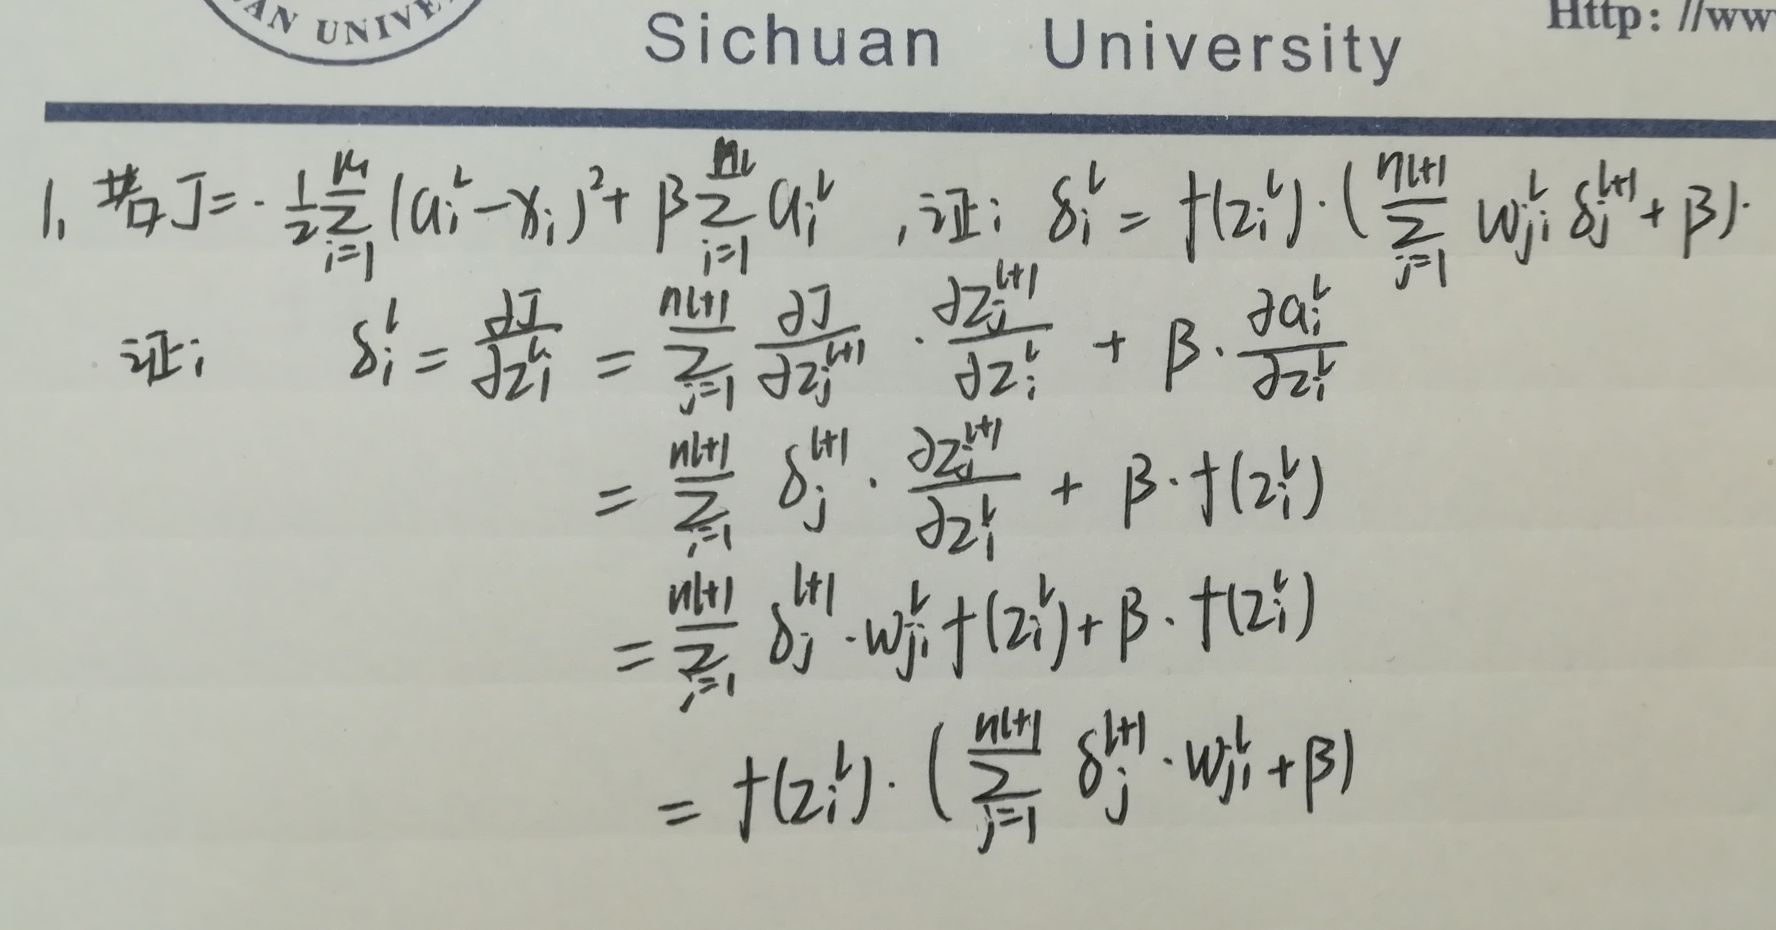 AN UNIVE
Sichuan University
Http: //ww
1. 若J = - 1/2 Σ_{i=1}^{n_1} (a_i^L - x_i)^2 + β Σ_{i=1}^{n_l} a_i^l , 证: δ_i^l = f(z_i^l) · ( Σ_{j=1}^{n_{l+1}} w_{ji}^l δ_j^{l+1} + β ).
证: δ_i^l = ∂J/∂z_i^l = Σ_{j=1}^{n_{l+1}} ∂J/∂z_j^{l+1} · ∂z_j^{l+1}/∂z_i^l + β · ∂a_i^l/∂z_i^l
= Σ_{j=1}^{n_{l+1}} δ_j^{l+1} · ∂z_j^{l+1}/∂z_i^l + β · f(z_i^l)
= Σ_{j=1}^{n_{l+1}} δ_j^{l+1} · w_{ji}^l f(z_i^l) + β · f(z_i^l)
= f(z_i^l) · ( Σ_{j=1}^{n_{l+1}} δ_j^{l+1} · w_{ji}^l + β )